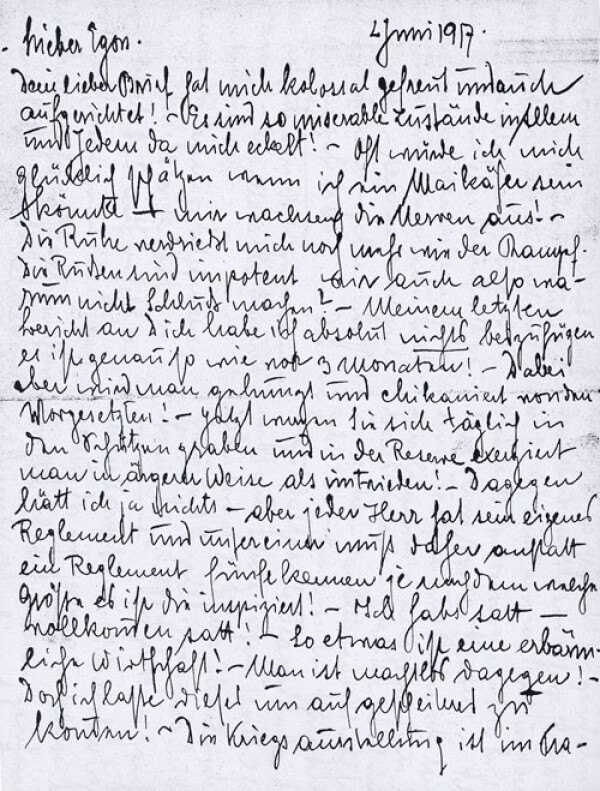 Lieber Egon. 4 Juni 1917.
Dein lieber Brief hat mich kolossal gefreut und auch
aufgerichtet! – Es sind so miserable Zustände in Allem
und Jedem da mich ekelt! – Oft würde ich mich
glücklich schätzen wenn ich ein Maikäfer sein
könnte – mir wachsen die Nerven aus! –
Die Ruhe verdriesst mich noch mehr wie der Kampf.
Die Russen sind impotent wir auch also wa-
rum nicht Schluss machen? – Meinem letzten
bericht an Dich habe ich absolut nichts beizufügen
es ist genau so wie vor 3 Monaten! – Dabei
aber wird man gehunzt und chikaniert von den
Vorgesetzten! – Jetzt Sie sich täglich in
den Schützengraben und in der Reserve exerziert
man in ärgerer Weise als im Frieden! – Dagegen
hätt ich ja nichts – aber jeder Herr hat sein eigenes
Reglement und unsereiner muß daher anstatt
ein Reglement fünfe kennen je nachdem welche
Größe es ist die inspiziert! – Ich habs satt –
vollkommen satt! – So etwas ist eine erbärm-
liche Wirtschaft! – Man ist machtlos dagegen! –
Doch ich lasse dieses um auf gescheiteres zu
kommen! – Die Kriegsausstellung ist im